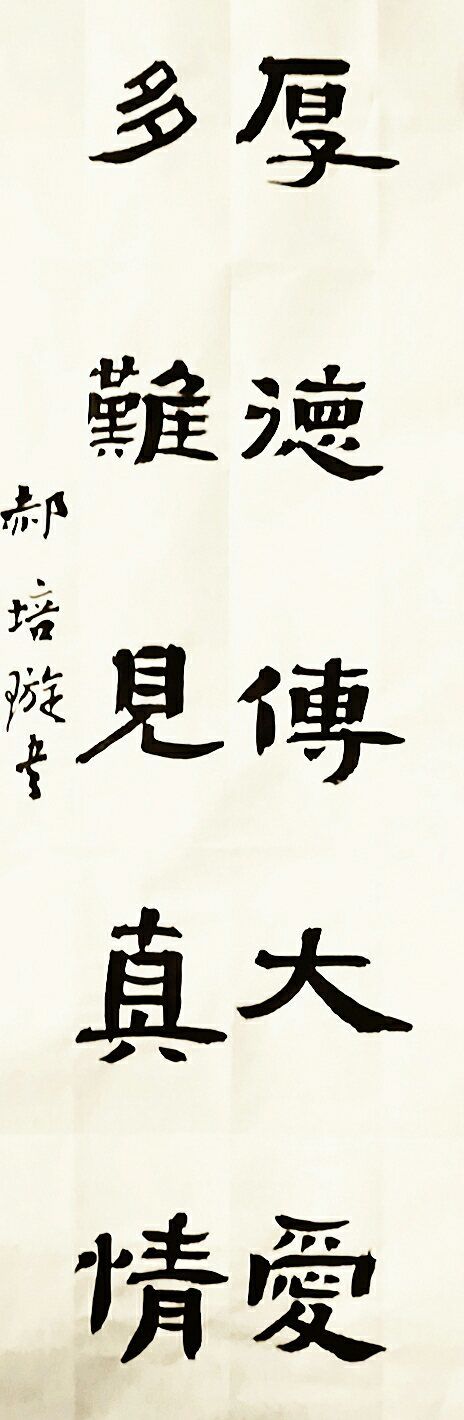 厚德傳大愛
多難見真情
郝培璇书